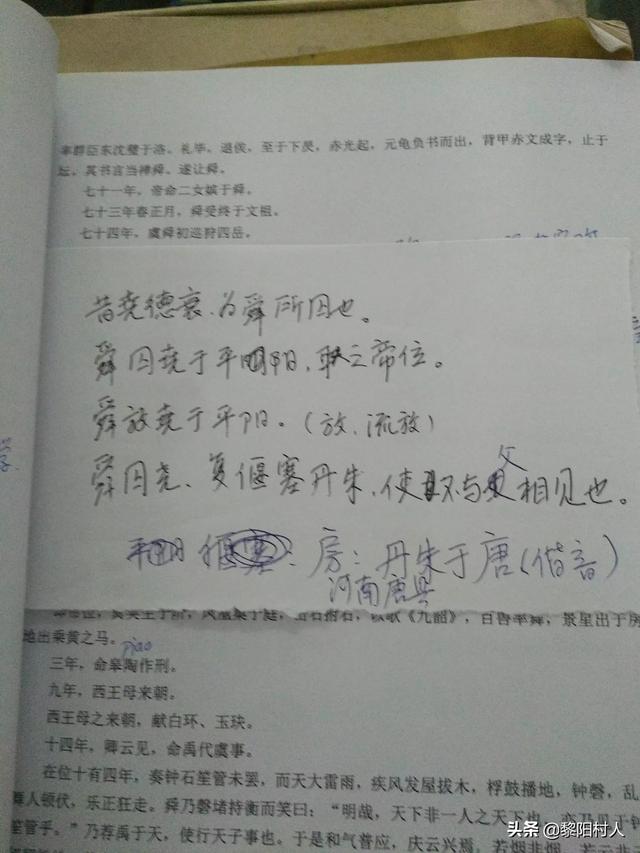 率群臣东沈璧于洛。礼毕、退俟，至于下昃，赤光起，元龟负书而出，背甲赤文成字，止于
坛。其书言当禅舜。遂让舜。
七十一年，帝命二女嫔于舜。
七十三年春正月，舜受终于文祖。
七十四年，虞舜初巡狩四岳。
昔尧德衰、为舜所囚也。
舜囚尧于平阳，取之帝位。
舜放尧于平阳。（放、流放）
舜囚尧、复偃塞丹朱，使不与父相见也。
房：丹朱于唐（偕音）
河南唐县
《九韶》，百兽率舞，景星出于房
地出乘黄之马。
piao
三年，命皋陶作刑。
九年，西王母来朝。
西王母之来朝，献白环、玉玦。
十四年，卿云见，命禹代虞事。
在位十有四年，奏钟石笙管未罢，而天大雷雨，疾风发屋拔木，桴鼓播地，钟磬，乱
舞人顿伏，乐正狂走。舜乃磬堵持衡而笑曰：“明哉，天下非一人之天下也，亦乃见于钟
笙管乎。”乃荐禹于天，使行天子事也。于是和气普应，庆云兴焉，若烟非烟，若云非
头条 @黎阳村人